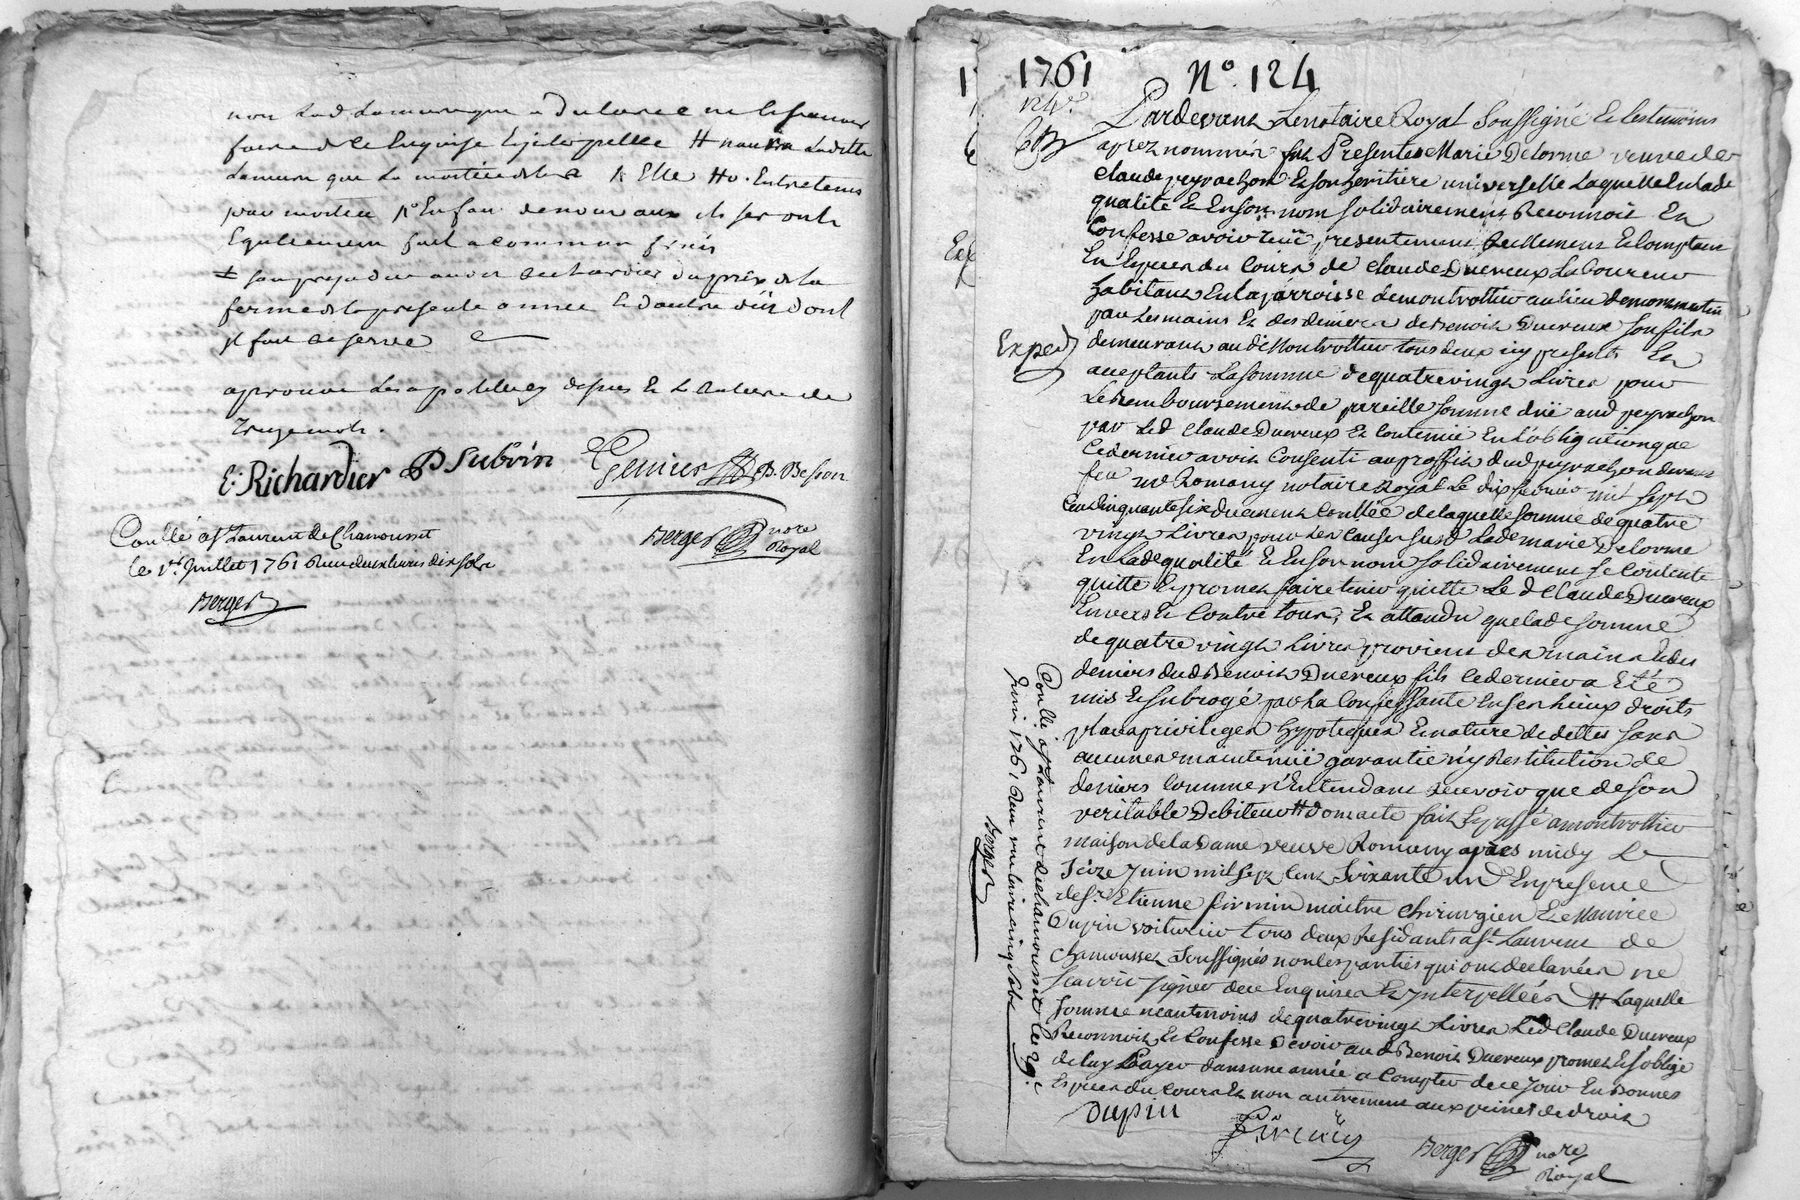 non Lad Lamure que a Declaré ne le scavoir
faire de ce Enquise Et jnterpellée # 
par mortier 
Egallement fait a commun frais
≠ sans prejudice aud Richardier du prix de la
ferme de la presente année Et dautre dût dont
il fait Reserve
aprouvé Les apostilles depuis Et La Rature de
E. Richardier P Subrin Genier P. Besson
Berger nore
Royal
Conllé a St Laurent de Chamousset
le 1er Juillet 1761 Reçu deux livres dix sols
Berger
1761 No. 124
Pardevant Le notaire Royal Soussigné Et les temoins
aprez nommés fut Presentes Marie Delorme veuve de
Claude peyrachon Et son heritiere universelle Laquelle En lade
qualité Et En son nom solidairement Reconnoit Et
Confesse avoir reçû presentement Reellement Et Comptant
En Especes du Cours de Claude Duereux Laboureur
habitant En la parroisse de montrottier au lieu de
par Les mains Et des deniers de Benoit Duereux son fils
Exped
demeurant aud Montrottier tous deux icy presents Et
acceptants La somme de quatre vingt Livres pour
Le Remboursement de pareille somme düe aud peyrachon
par Led Claude Duereux Et Contenüe En l'obligation que
Ce dernier avoit Consenti au proffit dud peyrachon devant
feu me Romany notaire Royal Le dix fevrier mil sept
Cent cinquante six duement Conllée de laquelle somme de quatre
vingt Livres pour Les causes susd Lade marie Delorme
En lade qualité Et En son nom solidairement se Contente
quitte Et promet faire tenir quitte Le d Claude Duereux
Envers Et Contre tous, Et attandu que lade somme
de quatre vingt Livres provient des mains Et des
deniers dud Benoit Duereux fils Ce dernier a Eté
mis Et subrogé par La Confessante En ses lieux droits
place privileges hypoteques Et nature de dettes sans
aucunes maintenüe garantie ny Restitution de
deniers Comme n'Entendant recevoir que de son
veritable Debiteur # dont acte fait Et passé a montrottier
maison de la Dame veuve Romany apres midy Le
seize Juin mil sept Cent Soixante un En presence
de Sr. Etienne firmin maitre Chirurgien Et Maurice
Dupin voiturier tous deux Residants a St. Laurent de
Chamousset Soussignés non les parties qui ont declarées ne
scavoir signer de ce Enquises Et Interpellées # Laquelle
somme neantmoins de quatre vingt Livres Led Claude Duereux
Reconnoit Et Confesse Devoir aud Benoit Duereux promet Et s'oblige
de luy Payer dans une année a Compter de ce Jour En Bonnes
Especes du Cours Et non autrement aux peines de droit
Dupin firmin Berger nore
Royal
Conllé a St Laurent de chamousset le 29e
Juin 1761 Reçu cinq sols
Berger